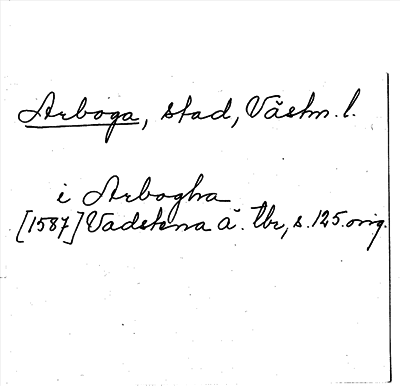 Arboga, stad, Västm. l.
i Arbogha
[1587] Vadstena ä. tbr, s. 125. orig.